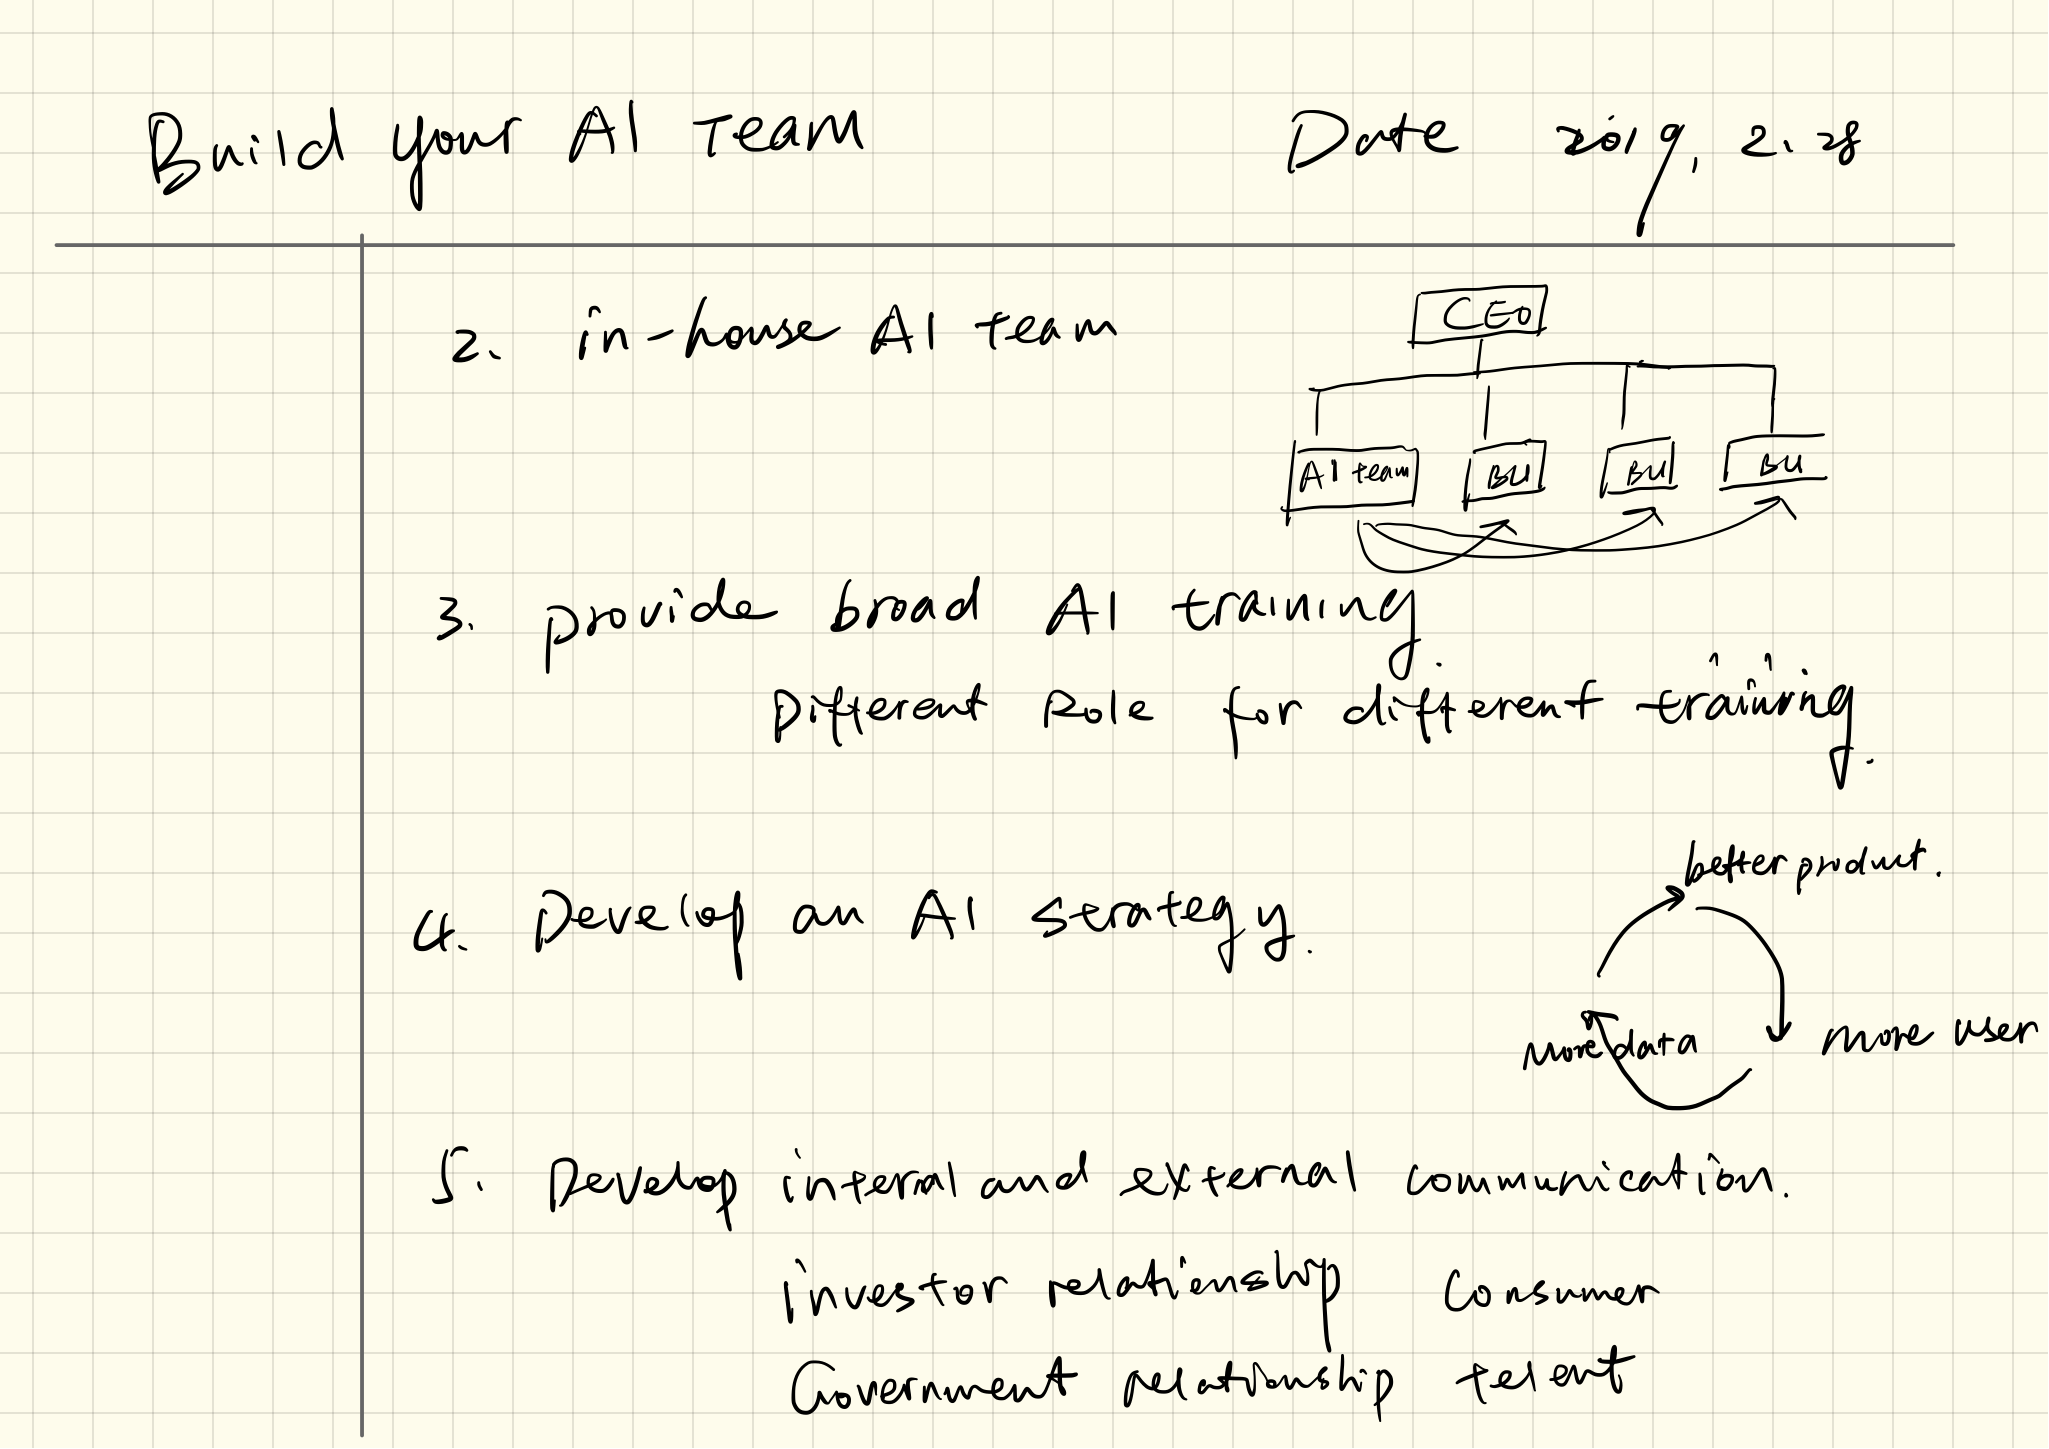 Build your AI Team
Date 2019, 2.28
2. in-house AI team
CEO
AI team BU BU BU
3. provide broad AI training.
Different Role for different training.
better product.
4. Develop an AI strategy.
more data
more user
5. Develop interal and external communication.
investor relationship consumer
Government relationship telent